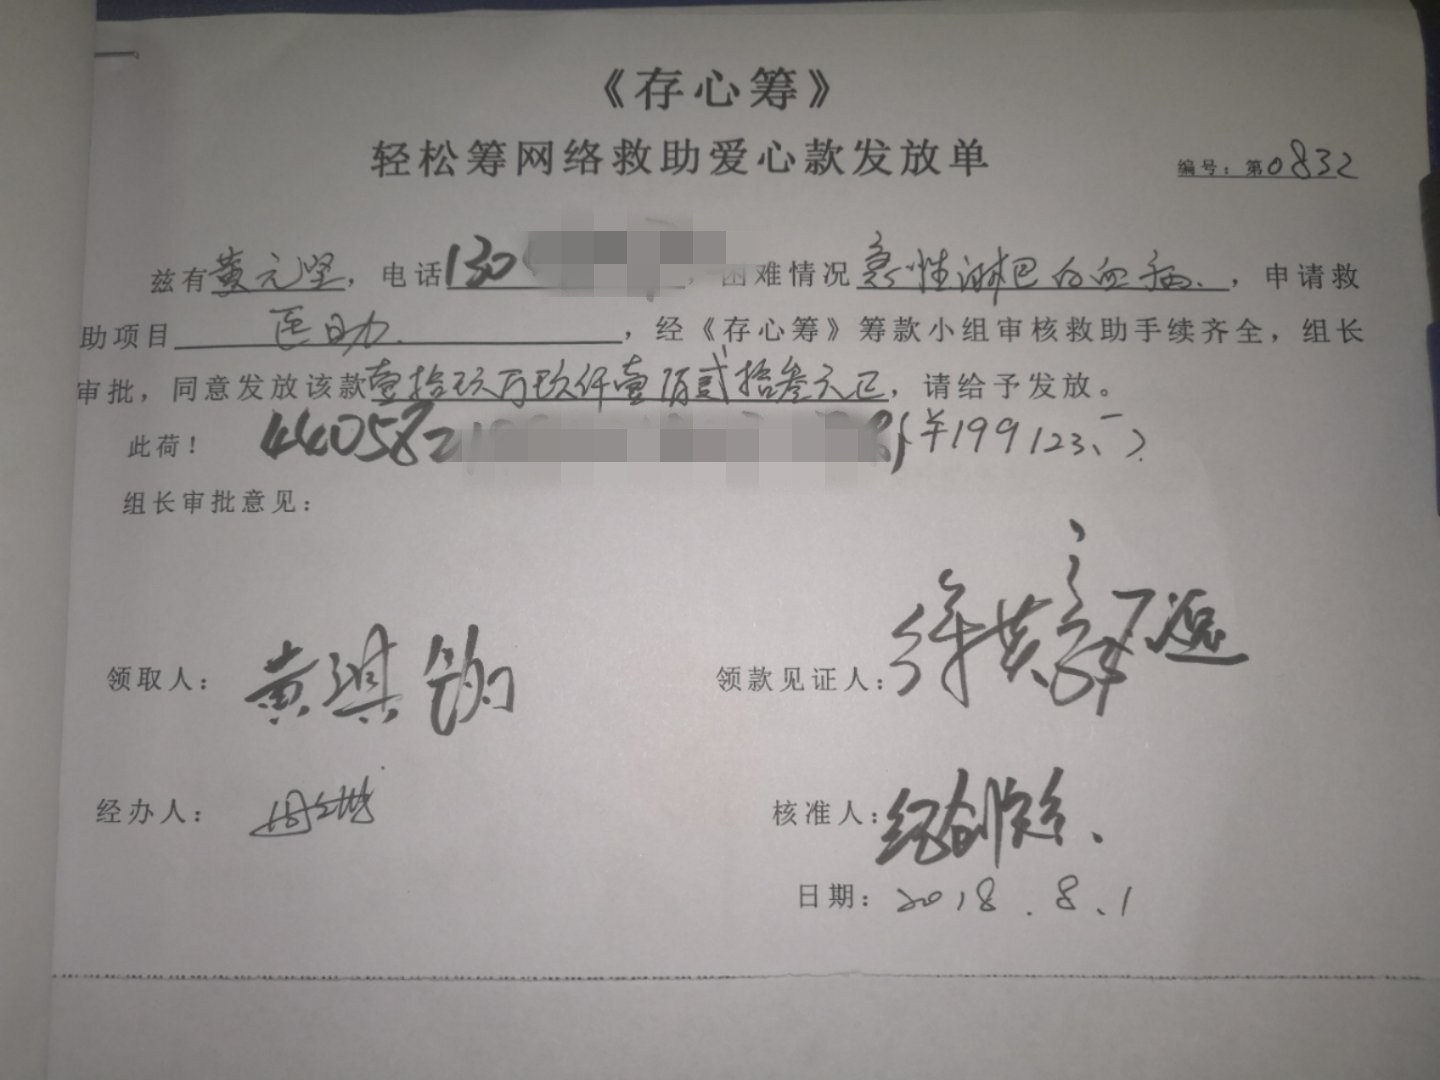 《存心筹》
轻松筹网络救助爱心款发放单
编号：第0832
兹有黄元坚，电话130，困难情况急性淋巴白血病，申请救
助项目医助，经《存心筹》筹款小组审核救助手续齐全，组长
审批，同意发放该款壹拾玖万玖仟壹佰贰拾叁元正，请给予发放。
此荷！ 440582 ¥199123
组长审批意见：
领取人：黄琪
领款见证人：
经办人：
核准人：
日期：2018.8.1